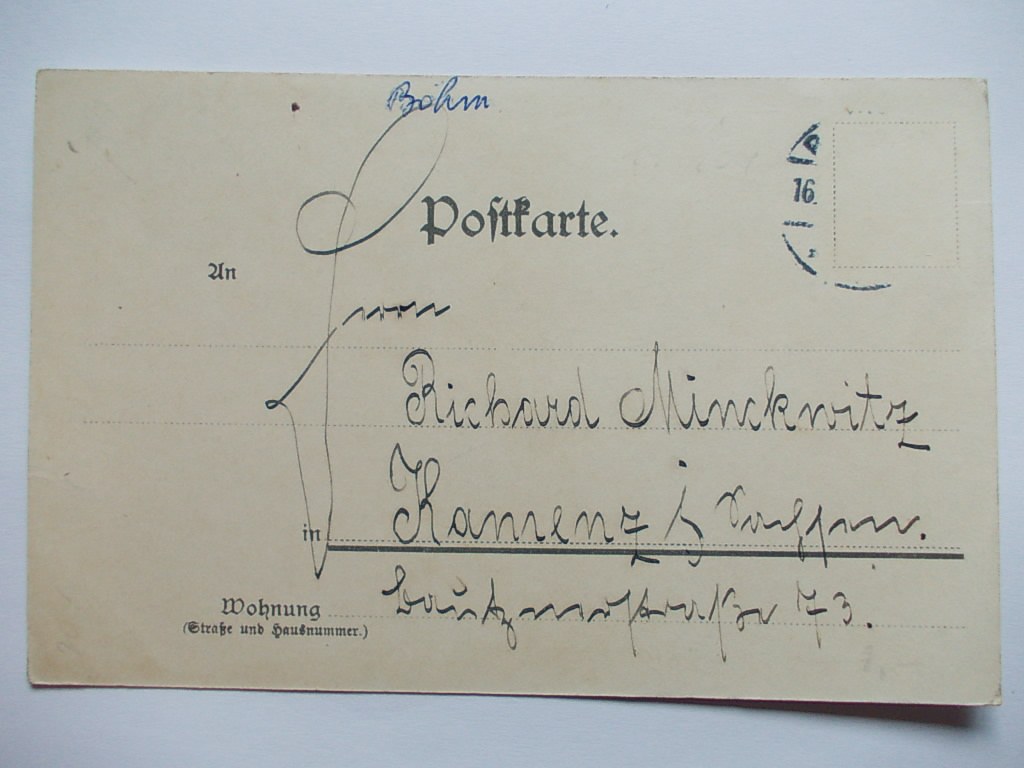 Böhm
Postkarte.
16.
An
Herrn
Richard Minckwitz
in Kamenz i/ Sachsen.
Wohnung Bautznerstraße 73.
(Straße und Hausnummer.)